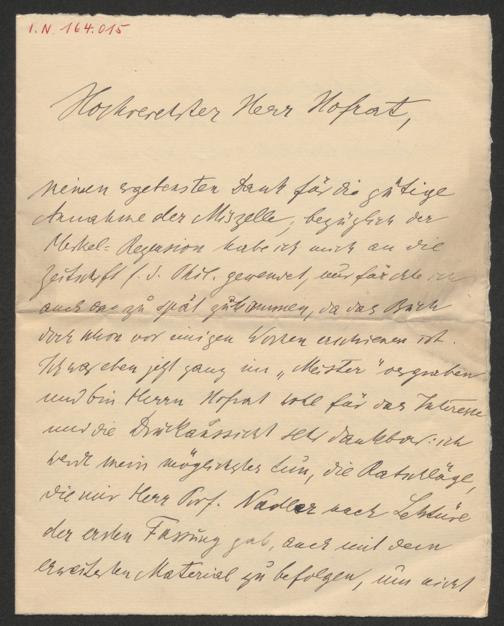 I.N. 164.015
Hochverehrter Herr Hofrat,
meinen ergebensten Dank für die gütige
Annahme der Miszelle; bezüglich der
Merkel-Rezension habe ich mich an die
Zeitschrift f. d. Phil. gewendet, nur fürchte ich
auch da zu spät zu kommen, da das Buch
doch schon vor einigen Wochen erschienen ist.
Ich war eben jetzt ganz im „Meister" vergraben
und bin Herrn Hofrat für das Interesse
und die Druckaussicht sehr dankbar: ich
werde mein möglichstes tun, die Ratschläge,
die mir Herr Prof. Nadler nach Lektüre
der ersten Fassung gab, auch mit dem
erweiterten Material zu befolgen, um nicht